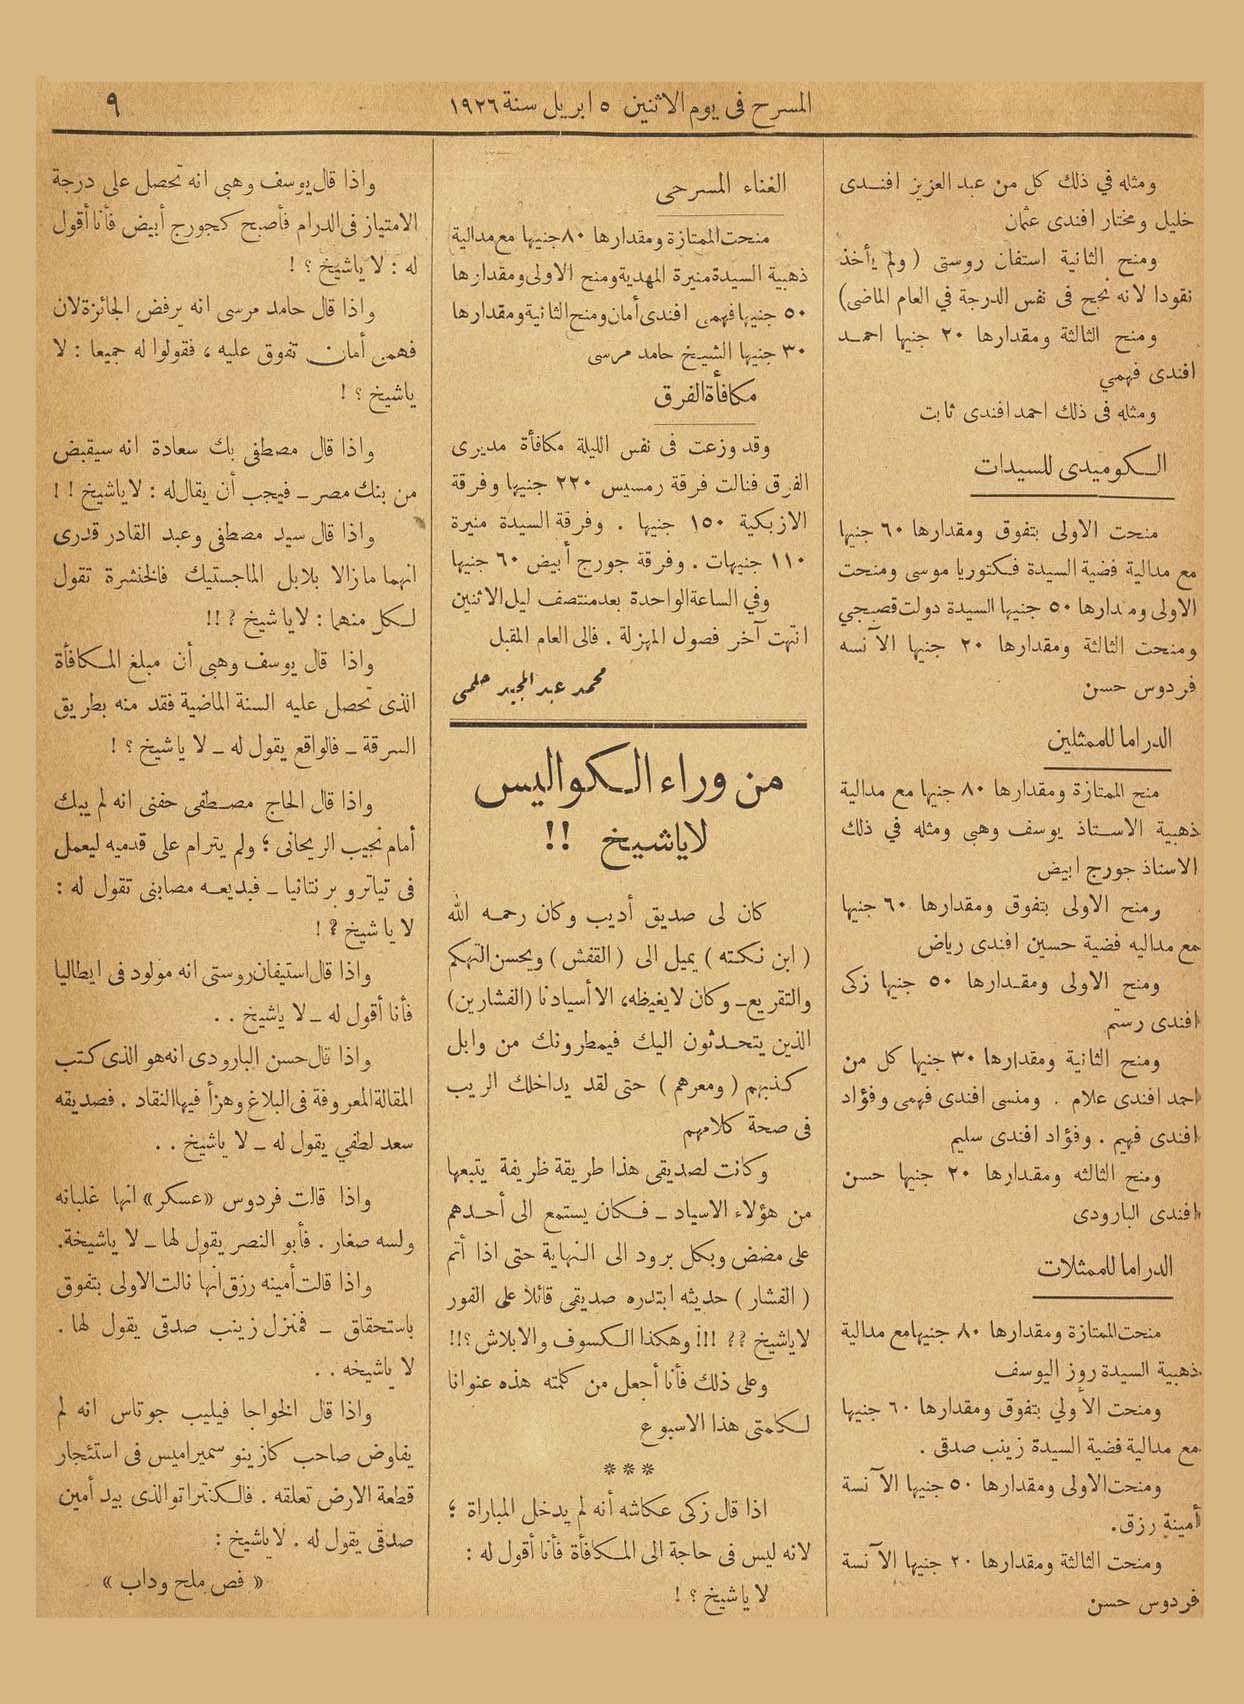 المسرح فى يوم الاثنين ٥ ابريل سنة ١٩٢٦
٩
ومثله في ذلك كل من عبد العزيز افندى
خليل ومختار افندى عثمان
ومنح الثانية استفان روستى ( ولم يأخذ
نقودا لانه نجح فى نفس الدرجة في العام الماضى)
ومنح الثالثة ومقدارها ٢٠ جنيها احمد
افندى فهمي
ومثله فى ذلك احمد افندى ثابت
الكوميدى للسيدات
منحت الاولى بتفوق ومقدارها ٦٠ جنيها
مع مدالية فضية السيدة فكتوريا موسى ومنحت
الاولى ومقدارها ٥٠ جنيها السيدة دولت قصبجي
ومنحت الثالثة ومقدارها ٢٠ جنيها الآنسه
فردوس حسن
الدراما للممثلين
منح الممتازة ومقدارها ٨٠ جنيها مع مدالية
ذهبية الاستاذ يوسف وهبى ومثله في ذلك
الاستاذ جورج ابيض
ومنح الاولى بتفوق ومقدارها ٦٠ جنيها
مع مداليه فضية حسين افندى رياض
ومنح الاولى ومقدارها ٥٠ جنيها زكى
افندى رستم
ومنح الثانية ومقدارها ٣٠ جنيها كل من
احمد افندى علام . ومنسى افندى فهمى وفؤاد
افندى فهيم . وفؤاد افندى سليم
ومنح الثالثه ومقدارها ٢٠ جنيها حسن
افندى البارودى
الدراما للممثلات
منحت الممتازة ومقدارها ٨٠ جنيها مع مدالية
ذهبية السيدة روز اليوسف
ومنحت الأولي بتفوق ومقدارها ٦٠ جنيها
مع مدالية فضية السيدة زينب صدقى .
ومنحت الاولى ومقدارها ٥٠ جنيها الآنسة
أمينة رزق.
ومنحت الثالثة ومقدارها ٢٠ جنيها الآنسة
فردوس حسن
الغناء المسرحى
منحت الممتازة ومقدارها ٨٠ جنيها مع مدالية
ذهبية السيدة منيرة المهدية ومنح الاولى ومقدارها
٥٠ جنيها فهمى افندى أمان ومنح الثانية ومقدارها
٣٠ جنيها الشيخ حامد مرسى
مكافأة الفرق
وقد وزعت فى نفس الليلة مكافأة مديرى
الفرق فنالت فرقة رمسيس ٢٢٠ جنيها وفرقة
الازبكية ١٥٠ جنيها . وفرقة السيدة منيرة
١١٠ جنيهات . وفرقة جورج أبيض ٦٠ جنيها
وفي الساعة الواحدة بعد منتصف ليل الاثنين
انتهت آخر فصول المهزلة . فالى العام المقبل
محمد عبد المجيد حلمى
من وراء الكواليس
لا ياشيخ !!
كان لى صديق أديب وكان رحمه الله
( ابن نكته ) يميل الى ( القفش ) ويحسن التهكم
والتقريع ــ وكان لا يغيظه، الا أسيادنا (الفشارين)
الذين يتحدثون اليك فيمطرونك من وابل
كذبهم ( ومعرهم ) حتى لقد يداخلك الريب
فى صحة كلامهم
وكانت لصديقى هذا طريقة ظريفة يتبعها
من هؤلاء الاسياد ــ فكان يستمع الى أحدهم
على مضض وبكل برود الى النهاية حتى اذا أتم
( الفشار ) حديثه ابتدره صديقى قائلا على الفور
لا ياشيخ ؟؟ !!! وهكذا الكسوف والابلاش ؟!!
وعلى ذلك فأنا اجعل من كلمته هذه عنوانا
لكلمتى هذا الاسبوع
***
اذا قال زكى عكاشه أنه لم يدخل المباراة ؛
لانه ليس فى حاجة الى المكافأة فأنا أقول له :
لا ياشيخ ؟ !
واذا قال يوسف وهبى انه تحصل على درجة
الامتياز فى الدرام فأصبح كجورج أبيض فأنا أقول
له : لا ياشيخ ؟ !
واذا قال حامد مرسى انه يرفض الجائزة لان
فهمى أمان تفوق عليه ، فقولوا له جميعا : لا
ياشيخ ؟ !
واذا قال مصطفى بك سعادة انه سيقبض
من بنك مصر ــ فيجب أن يقال له : لا ياشيخ ! !
واذا قال سيد مصطفى وعبد القادر قدرى
انهما مازالا بلابل الماجستيك فالخنشرة تقول
لكل منهما : لا يا شيخ ؟ !!
واذا قال يوسف وهبى أن مبلغ المكافأة
الذى تحصل عليه السنة الماضية فقد منه بطريق
السرقة ــ فالواقع يقول له ــ لا ياشيخ ؟ !
واذا قال الحاج مصطفى حفنى انه لم يبك
أمام نجيب الريحانى ؛ ولم يترام على قدميه ليعمل
فى تياترو برنتانيا ــ فبديعه مصابنى تقول له :
لا يا شيخ ؟ !
واذا قال استيفان روستى انه مولود فى ايطاليا
فأنا أقول له ــ لا ياشيخ . .
واذا قال حسن البارودى انه هو الذى كتب
المقالة المعروفة فى البلاغ وهزأ فيها النقاد . فصديقه
سعد لطفي يقول له ــ لا ياشيخ . .
واذا قالت فردوس «عسكر» انها غلبانه
ولسه صغار . فأبو النصر يقول لها ــ لا ياشيخة.
واذا قالت أمينه رزق انها نالت الاولى بتفوق
باستحقاق ــ فمنزل زينب صدقى يقول لها .
لا ياشيخه . .
واذا قال الخواجا فيليب جوتاس انه لم
يفاوض صاحب كازينو سميراميس فى استئجار
قطعة الارض تعلقه . فالكنتراتو الذى بيد أمين
صدقى يقول له . لا ياشيخ :
« فص ملح وداب »